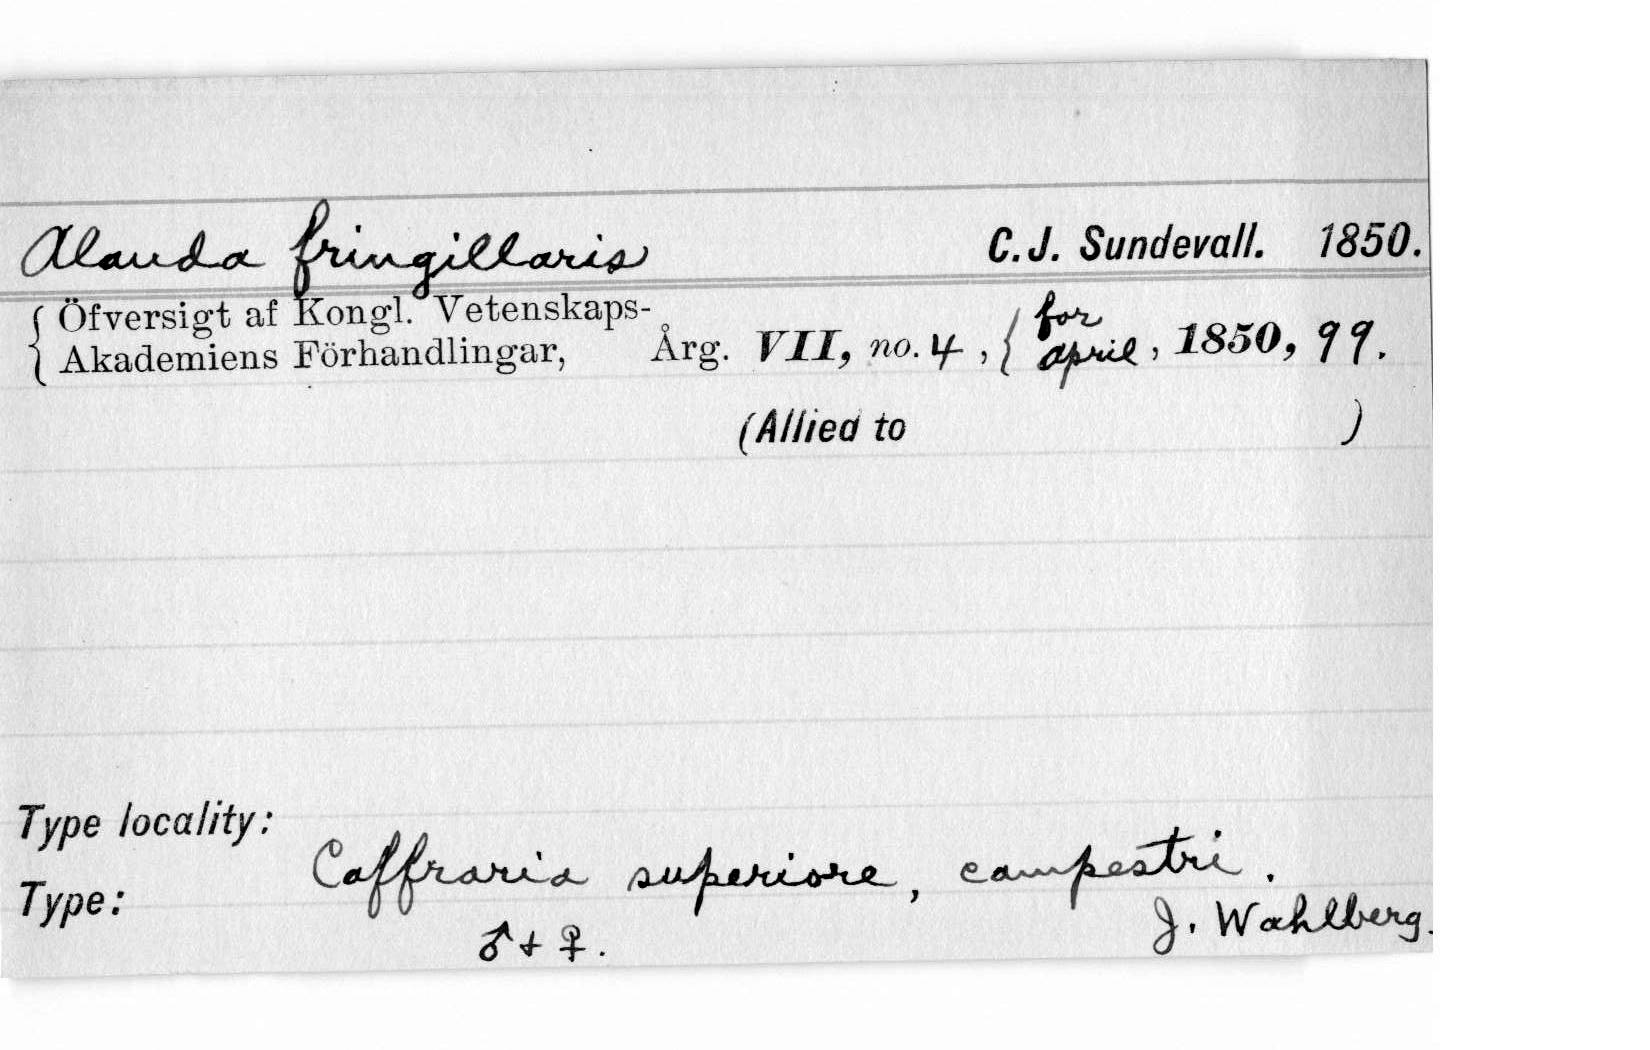 Alauda fringillaris C.J. Sundevall. 1850.
{ Öfversigt af Kongl. Vetenskaps-
Akademiens Förhandlingar, Årg. VII, no. 4, { for april, 1850, 99.
(Allied to )
Type locality:
Caffraria superiore, campestri.
Type:
♂ + ♀. J. Wahlberg.